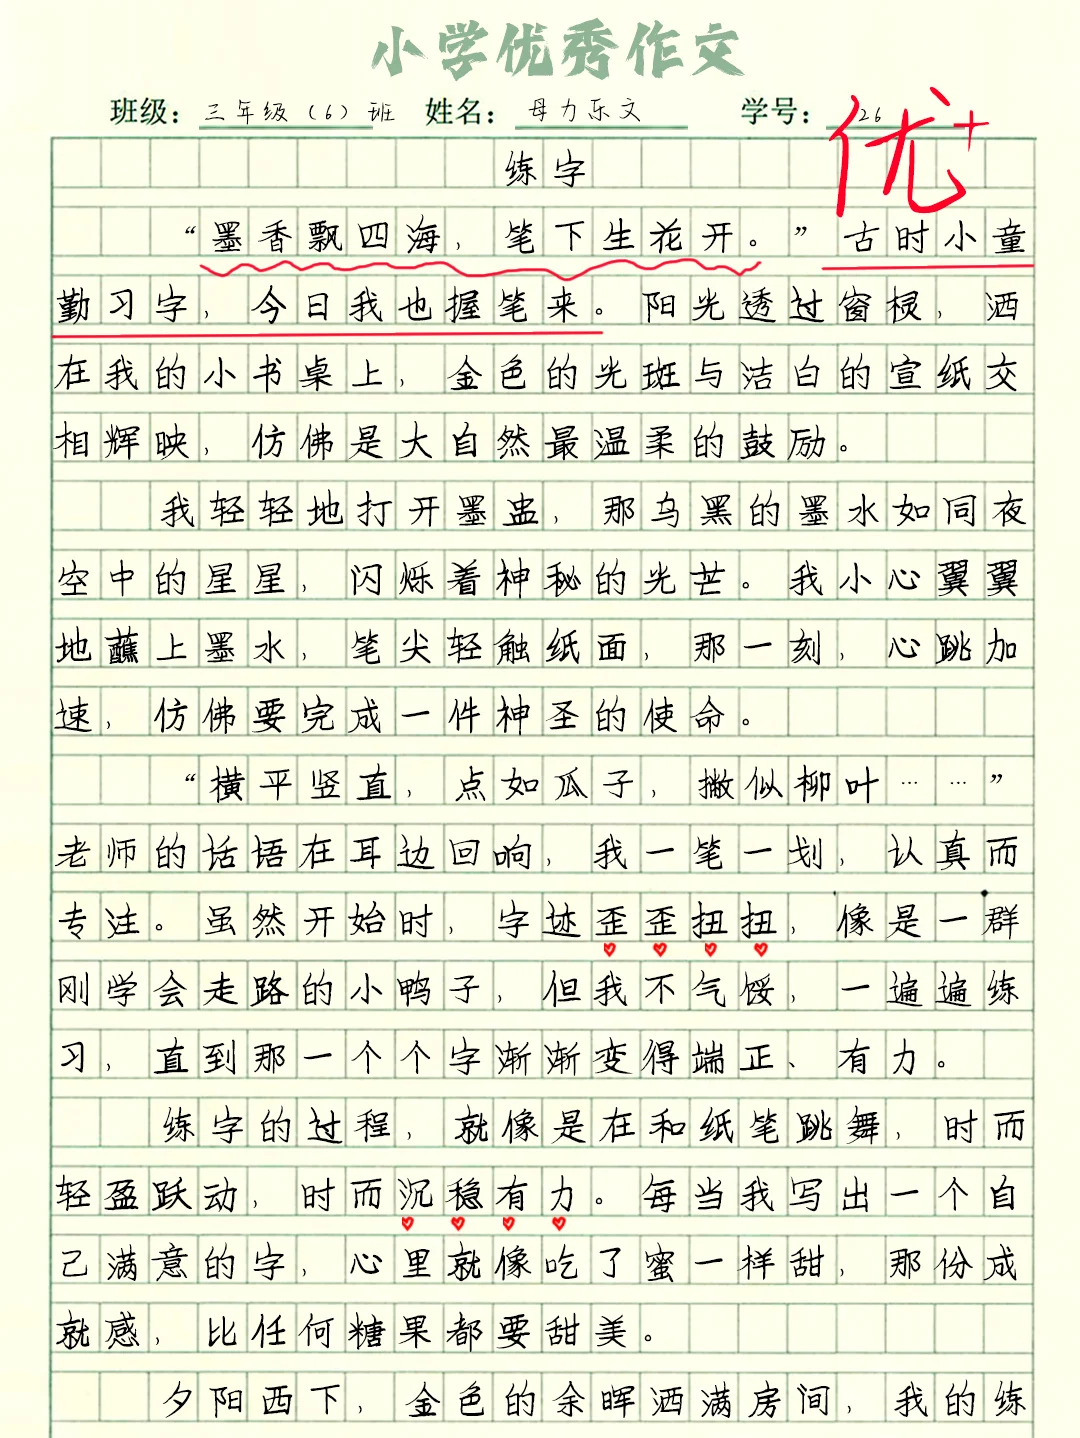 小学优秀作文
班级：三年级（6）班 姓名：母力乐文 学号：26
优+
练字
“墨香飘四海，笔下生花开。”古时小童
勤习字，今日我也握笔来。阳光透过窗棂，洒
在我的小书桌上，金色的光斑与洁白的宣纸交
相辉映，仿佛是大自然最温柔的鼓励。
我轻轻地打开墨盅，那乌黑的墨水如同夜
空中的星星，闪烁着神秘的光芒。我小心翼翼
地蘸上墨水，笔尖轻触纸面，那一刻，心跳加
速，仿佛要完成一件神圣的使命。
“横平竖直，点如瓜子，撇似柳叶……”
老师的话语在耳边回响，我一笔一划，认真而
专注。虽然开始时，字迹歪歪扭扭，像是一群
刚学会走路的小鸭子，但我不气馁，一遍遍练
习，直到那一个个字渐渐变得端正、有力。
练字的过程，就像是在和纸笔跳舞，时而
轻盈跃动，时而沉稳有力。每当我写出一个自
己满意的字，心里就像吃了蜜一样甜，那份成
就感，比任何糖果都要甜美。
夕阳西下，金色的余晖洒满房间，我的练